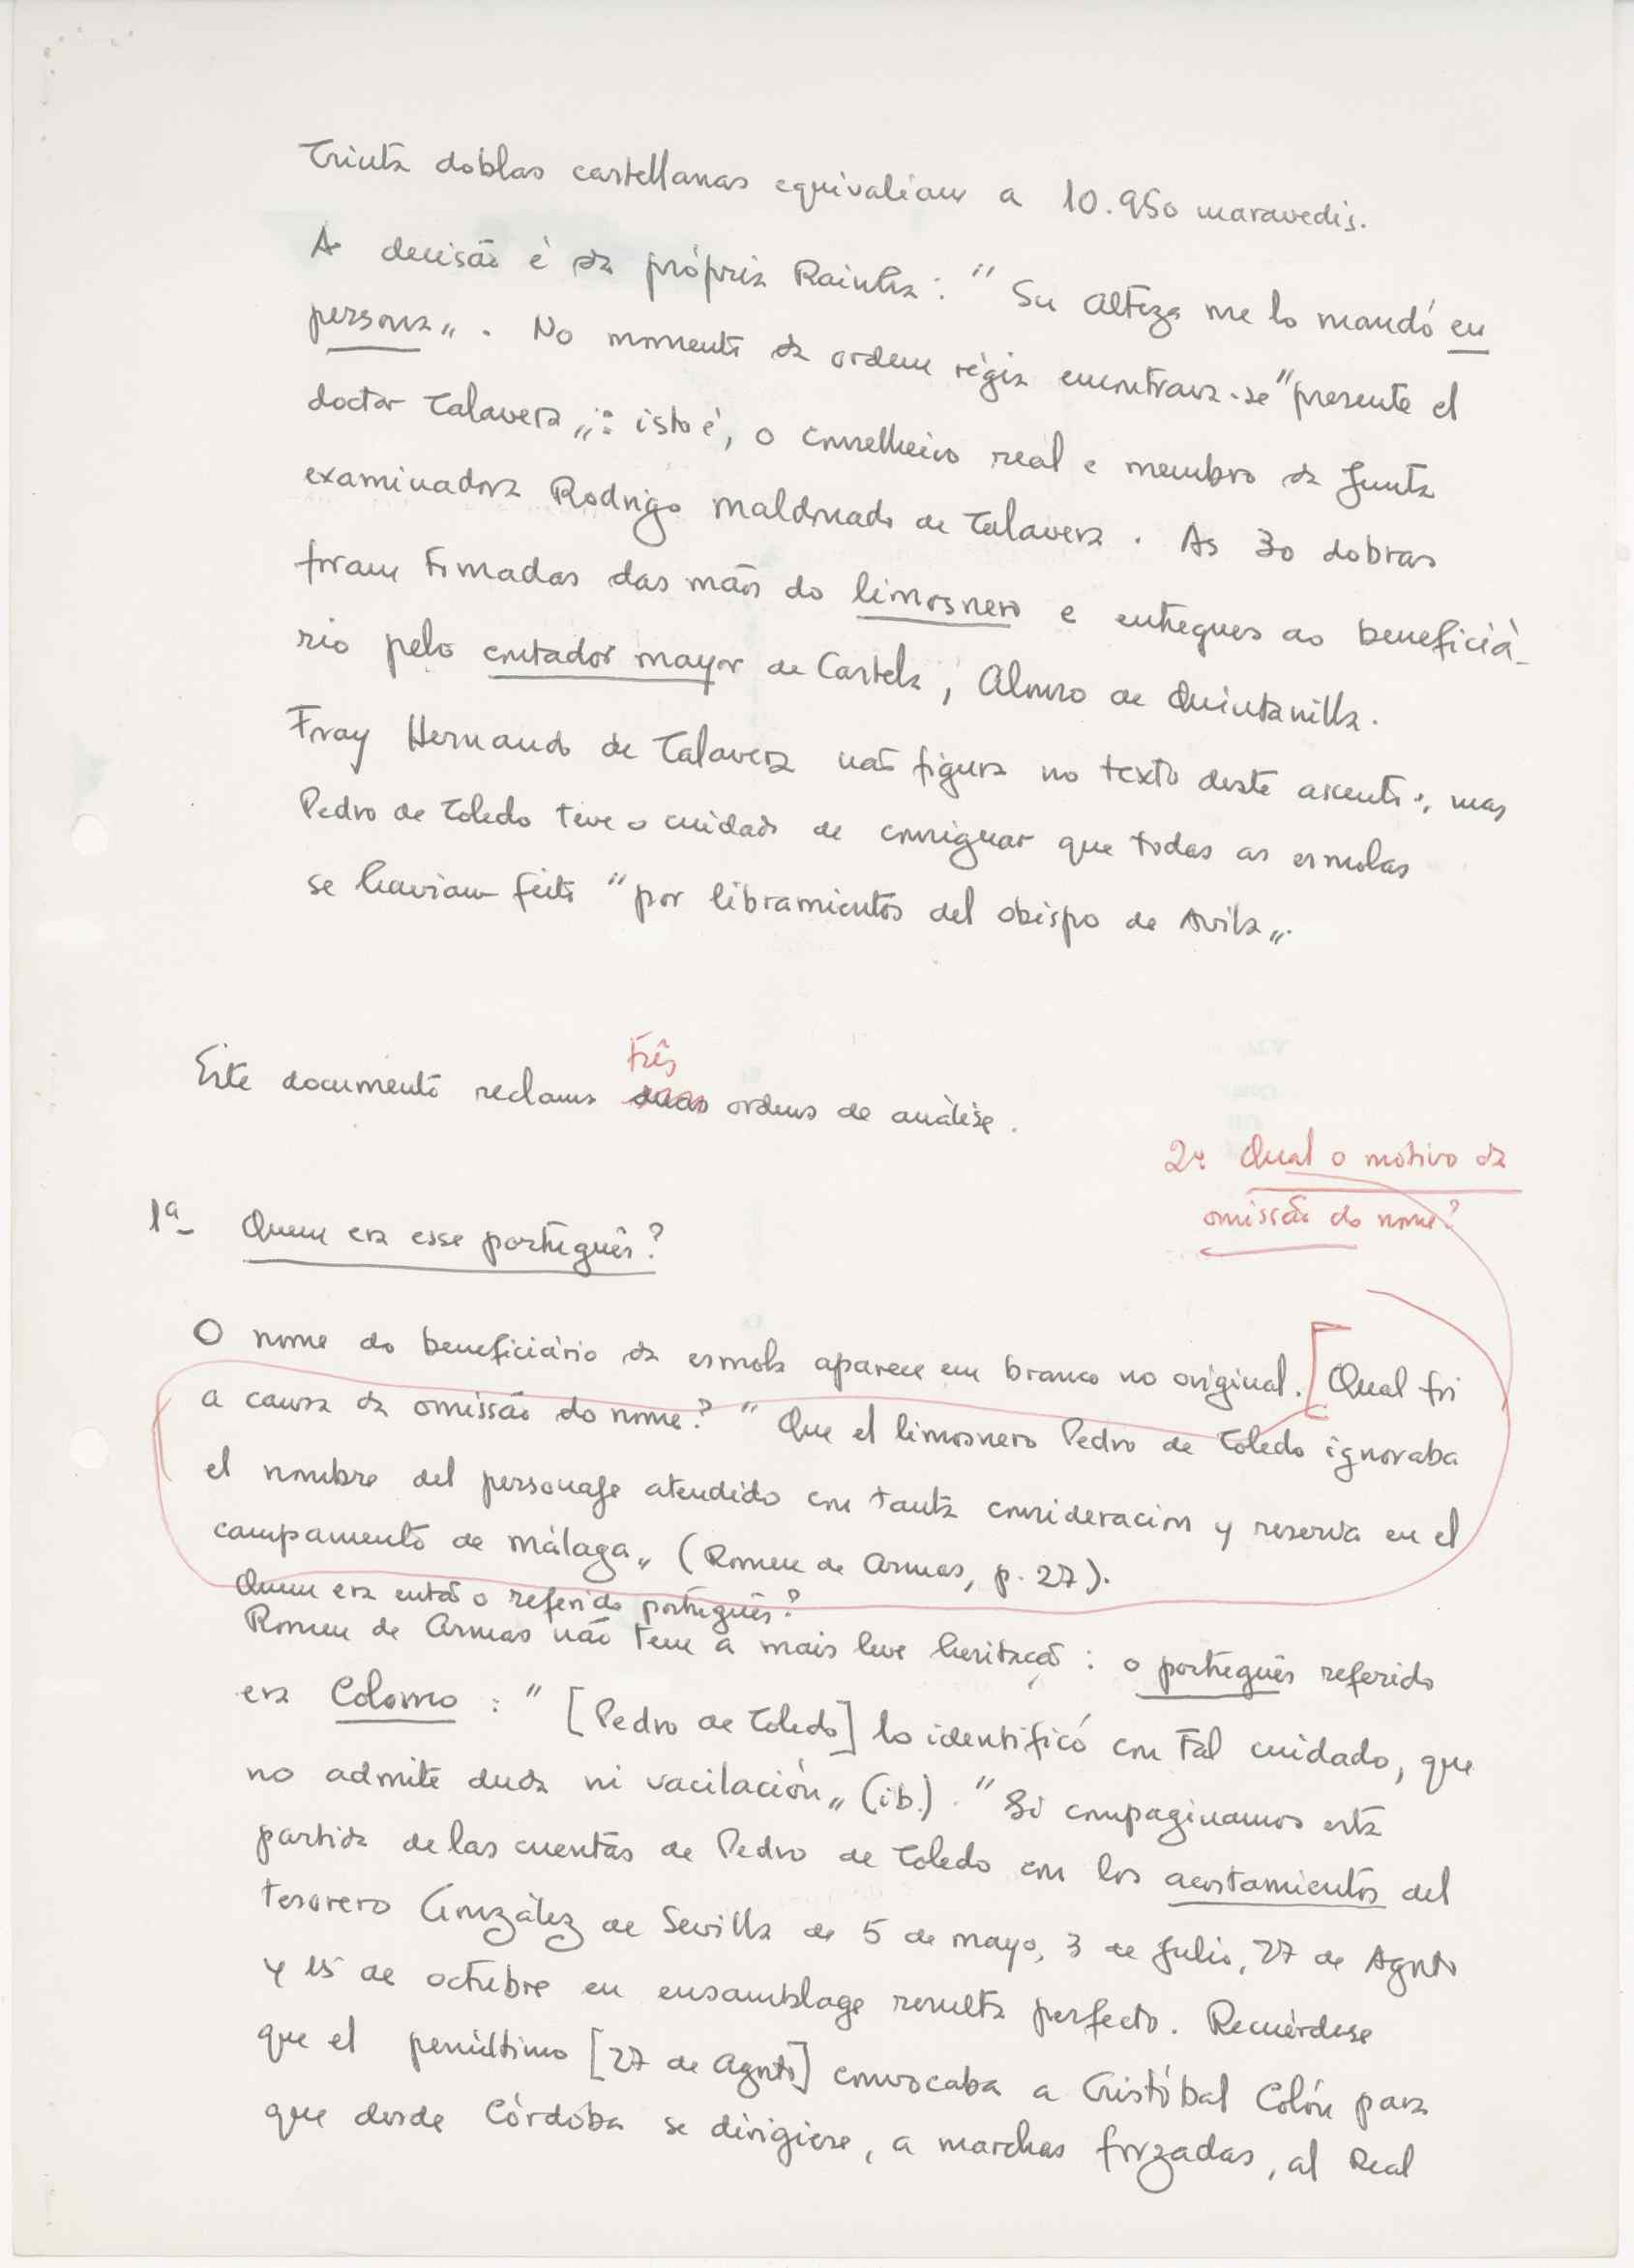 Trinta doblas castellanas equivaliam a 10.950 maravedis.
A decisão é da própria Rainha: "Su Alteza me lo mandó en
persona". No momento da ordem régia encontrava-se "presente el
doctor Talavera": isto é, o conselheiro real e membro da Junta
examinadora Rodrigo Maldonado de Talavera. As 30 dobras
foram tomadas das mãos do limosnero e entregues ao beneficiá-
rio pelo contador mayor de Castela, Alonso de Quintanilla.
Fray Hernando de Talavera não figura no texto deste assento, mas
Pedro de Toledo teve o cuidado de consignar que todas as esmolas
se haviam feito "por libramientos del obispo de Avila".
Este documento reclama duas ordens de análise.
três
2ª Qual o motivo da
omissão do nome?
1ª- Quem era esse português?
O nome do beneficiário da esmola aparece em branco no original. [Qual foi
a causa da omissão do nome? "Que el limosnero Pedro de Toledo ignoraba
el nombre del personage atendido con tanta consideracion y reserva en el
campamento de Málaga" (Romeu de Armas, p. 27).
Quem era então o referido português?
Romeu de Armas não tem a mais leve hesitação: o português referido
era Colomo: "[Pedro de Toledo] lo identificó con tal cuidado, que
no admite duda ni vacilación" (ib.). "Si compaginamos esta
partida de las cuentas de Pedro de Toledo con los acostamientos del
tesorero González de Sevilla de 5 de mayo, 3 de Julio, 27 de Agosto
y 15 de octubre en ensamblage resulta perfecto. Recuérdese
que el penúltimo [27 de Agosto] convocaba a Cristóbal Colón para
que desde Córdoba se dirigiese, a marchas forzadas, al Real